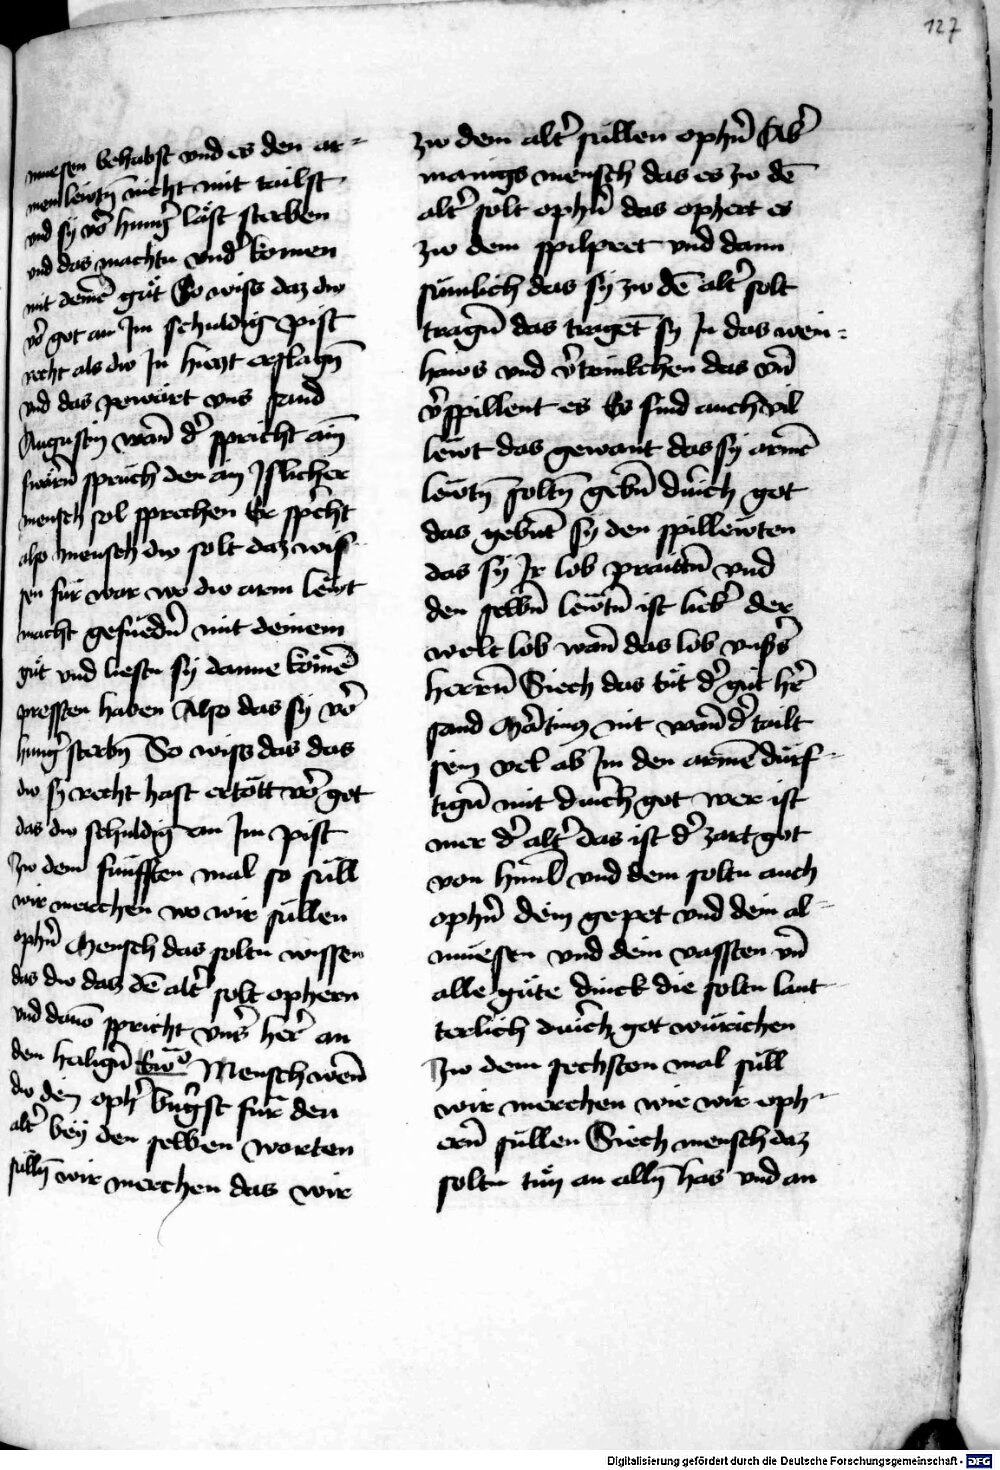 127
muesen behabst vnd es den ar=
menlewtñ nicht mit tailst
vnd sy võ hung̃ läst sterben
vnd das machtu vnd̃ komen
mit deinẽ gůt So wiss daz dw
võ got an Im schuldig pist
recht als dw In hietzt erslagñ
vnd das pewärt vns sand
Augustin wañ d̃ spricht ain
swärñ spruch den ain Islicher
mensch sol sprechen Er sp̃cht
also mensch dw solt daz wis=
sen für war wo dw arm lewt
macht gefuedr̃n mit deinem
gůt vnd liestu sy danne kömẽ
pressten haben Also das sy võ
hung̃ sterbñ So wiss das das
dw sy recht hast ertött võ got
das dw schuldig an Im pist
Zw dem fünfften mal so süll
wir merchen wo wir süllen
ophr̃n Mensch das soltu wissen
das dw daz dẽ alt̃ solt ophern
vnd dauõ spricht vns̃ her̃ an
dem heiligñ Ewõ Mensch weñ
dw dein oph̃ bring̃st für den
alt̃ bey den selben worten
süllñ wir merchen das wir
zw dem alt̃ süllen ophr̃n Ab̃
manigs mensch das es zw dẽ
alt̃ solt ophr̃n das ophert es
zw dem spilpret vnd dann
sümlich das sy zw dẽ alt̃ solt
tragñ das tragẽt sy In das wein=
haws vnd ṽtrinkchen das vñ
ṽspillent es Es sind auch vil
lewt das gewant das sy armẽ
lewtñ soltñ gebñ durich got
das gebnt sy den spillewten
das sy Ir lob praittñ vnd
den selbñ lewtñ ist lieb̃ der
welt lob wañ das lob vnss̃s
herrñ Siech das tůt d̃ gůt her̃
sand Martinus nit wañ d̃ tailt
sein vel ab Im den armẽ dürf=
tigñ mit durich got wer ist
mer d̃ alt̃ das ist d̃ zart got
von himl̃ vnd dem soltu auch
ophr̃n dein gepet vnd dein al=
muesen vnd dein vassten vñ
alle güte dinck die soltu laut=
terlich durich got würichen
Zw dem sechsten mal süll
wir merchen wie wir oph=
erñ süllen Siech mensch daz
soltu tůn an allñ has vnd an
Digitalisierung gefördert durch die Deutsche Forschungsgemeinschaft - DFG